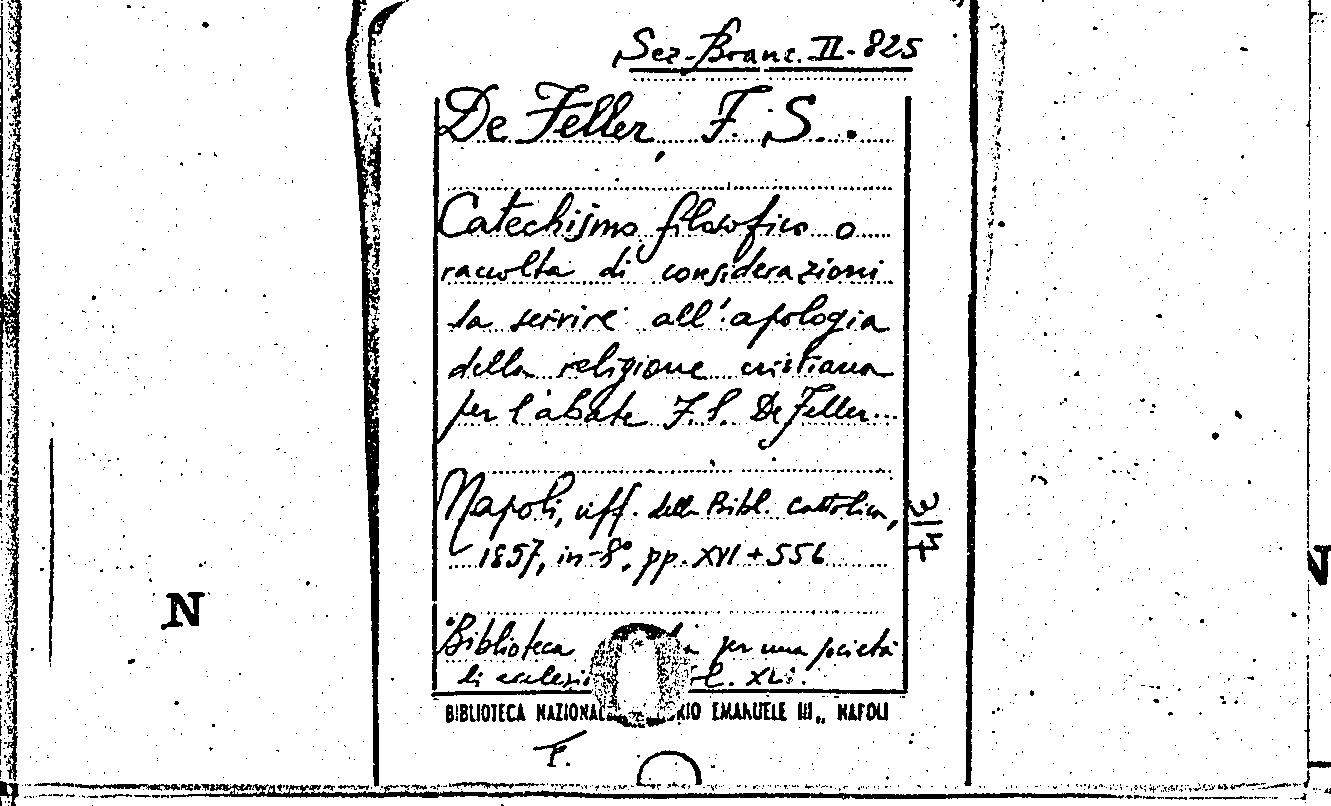 Sez. Branc. II - 825
De Feller, F. S.
Catechismo filosofico o
raccolta di considerazioni
da servire all'apologia
della religione cristiana
per l'abate F. S. De Feller
Napoli, uff. della Bibl. cattolica,
1857, in-8°, pp. XVI + 556
3/4
Biblioteca per una società
di
BIBLIOTECA NAZIONAL EMANUELE III„ NAPOLI
F.
N
N